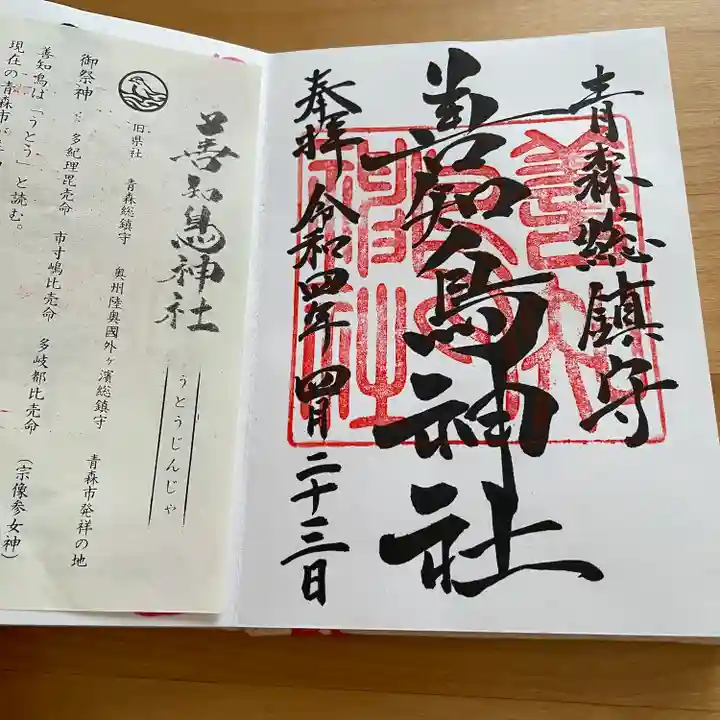 青森総鎮守
善知鳥神社
奉拝 令和四年四月二十三日
善知鳥神社
うとうじんじゃ
旧県社 青森総鎮守 奥州陸奥國外ヶ濱総鎮守 青森市発祥の地
御祭神 多紀理毘売命 市寸嶋比売命 多岐都比売命 (宗像参女神)
善知鳥は「うとう」と読む。
現在の青森市